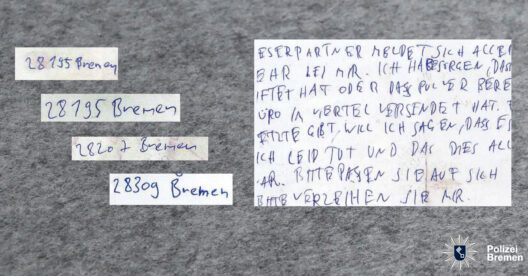 28195 Bremen
28195 Bremen
28207 Bremen
28309 Bremen
ESERPARTNER MELDET SICH ALLEI
BAR BEI MR. ICH HABE SORGEN, DAS
IFTET HAT ODER DAS PULVER BERE
ÜRO IN VIERTEL VERSENDET HAT.
ETZTE GIBT, WILL ICH SAGEN, DASS ES
ICH LEID TUT UND DAS DIES ALL
AR. BITTE PASEN SIE AUF SICH
BITTE VERZEIHEN SIE MR.
Polizei
Bremen